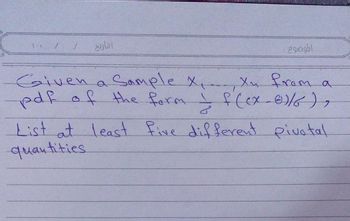 Given a Sample X₁, ..., Xn from a
pdf of the form 1/σ f((x-θ)/σ),
List at least five different pivotal
quantities